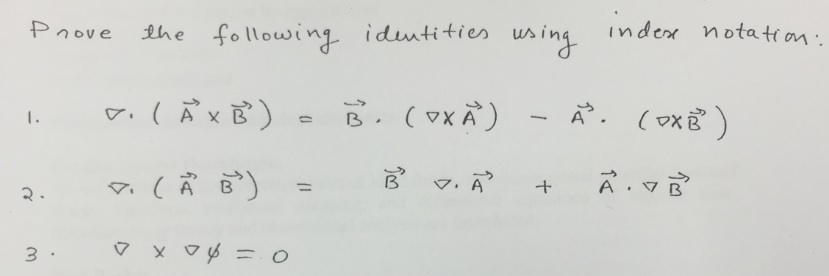 Prove the following identities using index notation:
1. ∇. ( A⃗ × B⃗ ) = B⃗ . ( ∇×A⃗ ) − A⃗ . ( ∇×B⃗ )
2. ∇. ( A⃗ B⃗ ) = B⃗ ∇. A⃗ + A⃗ . ∇ B⃗
3. ∇ × ∇ϕ = 0